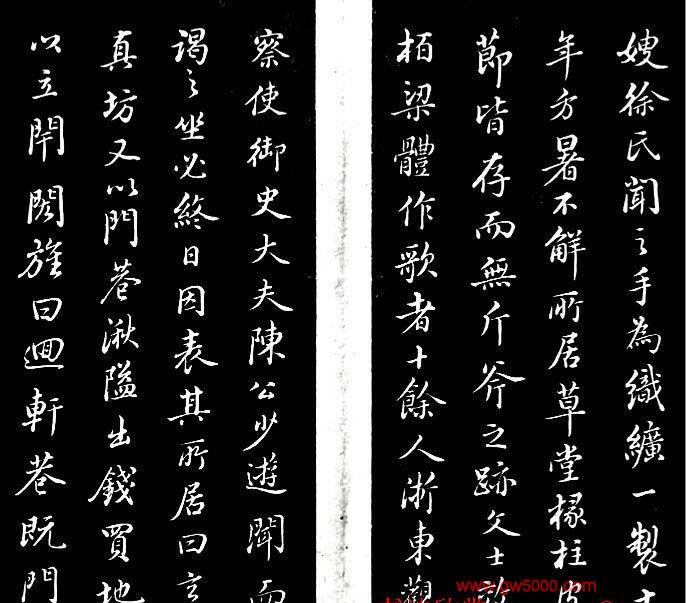 嫂徐氏聞之手為織纊一製十
年方暑不解所居草堂椽柱
節皆存而無斤斧之跡文士效
栢梁體作歌者十餘人浙東觀
察使御史大夫陳公少遊聞而
謁之坐必終日因表其所居曰玄
真坊又以門巷湫隘出錢買地
以立閈閎旌曰迴軒巷既門
www.gw5000.com